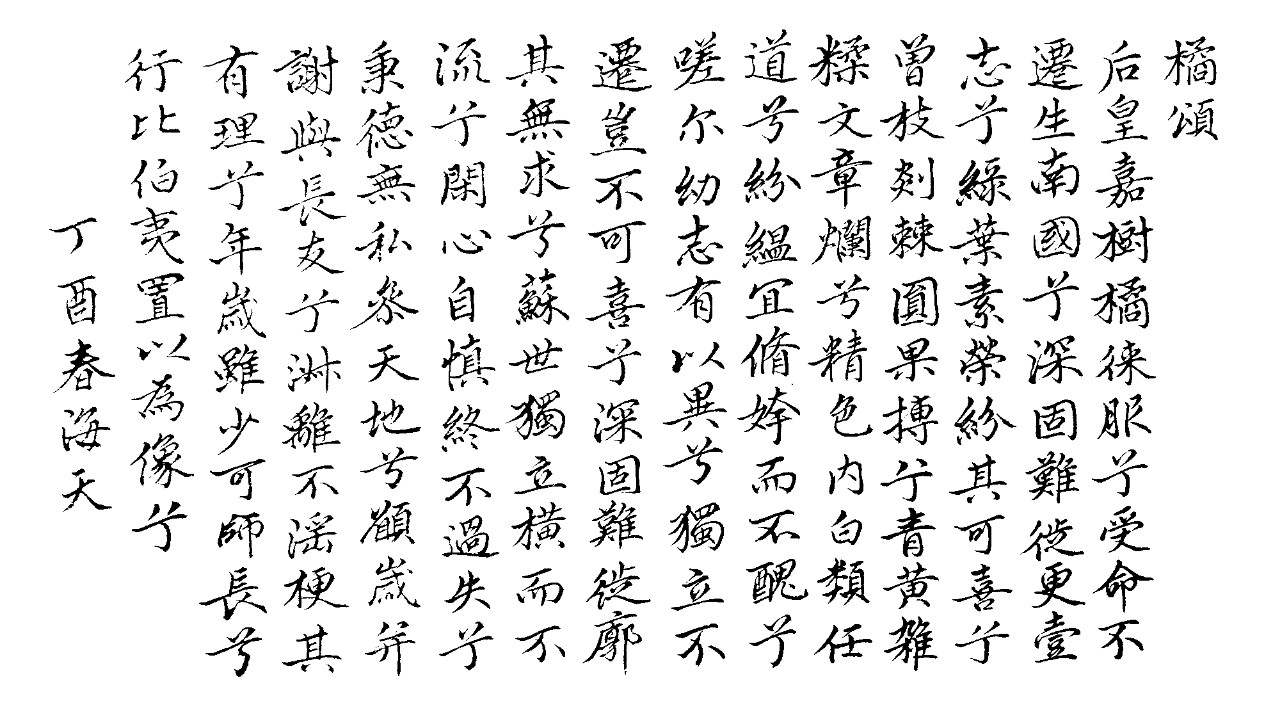 橘頌
后皇嘉樹橘徠服兮受命不
遷生南國兮深固難徙更壹
志兮綠葉素榮紛其可喜兮
曾枝剡棘圓果摶兮青黃雜
糅文章爛兮精色內白類任
道兮紛緼宜脩姱而不醜兮
嗟尔幼志有以異兮獨立不
遷豈不可喜兮深固難徙廓
其無求兮蘇世獨立橫而不
流兮閑心自慎終不過失兮
秉德無私參天地兮願歲并
謝與長友兮淋離不淫梗其
有理兮年歲雖少可師長兮
行比伯夷置以為像兮
丁酉春海天